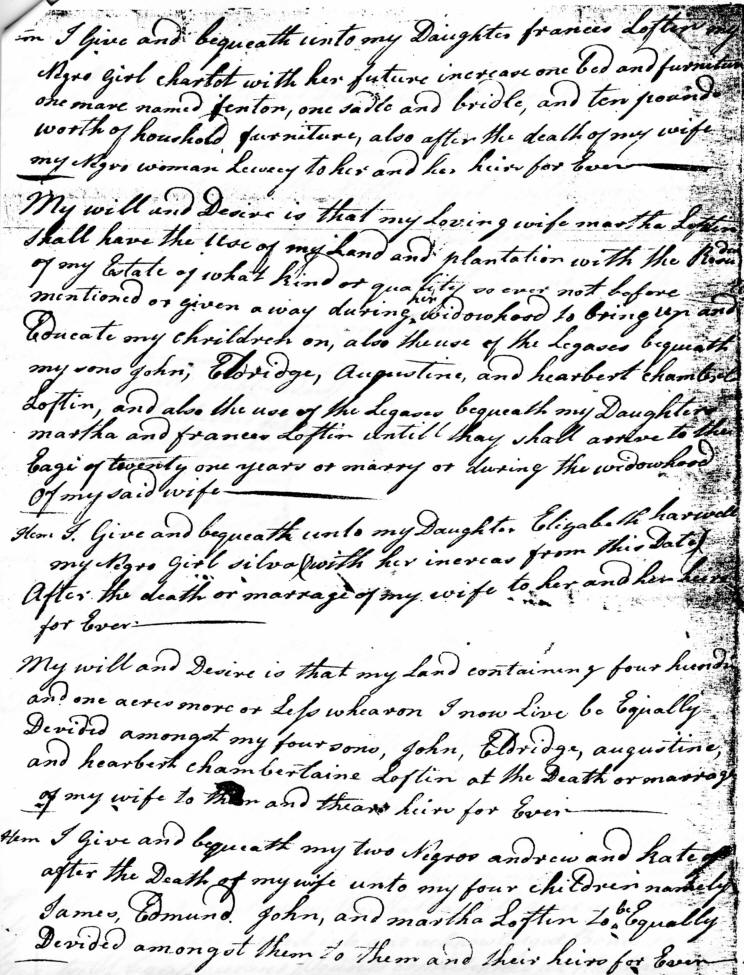 I Give and bequeath unto my Daughter frances Loftin my
Negro Girl Charlot with her future increase one bed and furniture
one mare named fenton, one sadle and bridle, and ten pounds
worth of houshold furniture, also after the death of my wife
my Negro woman to her and her heirs for Ever
My will and Desire is that my Loving wife martha Loftin
Shall have the use of my Land and plantation with the
of my Estate of what kind or quallity so ever not before
mentioned or given away during her widowhood to bring up and
Educate my chrildren on, also the use of the Legases bequeath
my sons John, Eldridge, Augustine, and hearbert chamber
Loftin, and also the use of the Legases bequeath my Daughters
martha and frances Loftin untill thay shall arrive to the
Eage of twenty one years or marry or during the widowhood
Of my said wife
Item I Give and bequeath unto my Daughter Elizabeth harwell
my Negro Girl silva (with her increas from this Date)
After the death or marrage of my wife to her and her heirs
for Ever
My will and Desire is that my Land containing four hundr
and one acres more or Less whearon I now Live be Equally
Devided amongst my four sons, John, Eldridge, augustine,
and hearbert chambertaine Loftin at the Death or marrage
of my wife to them and thear heirs for Ever
Item I Give and bequeath my two Negros andrew and Kate
after the Death of my wife unto my four children namely
James, Edmund. John, and martha Loftin to be Equally
Devided amongst them to them and their heirs for Ever